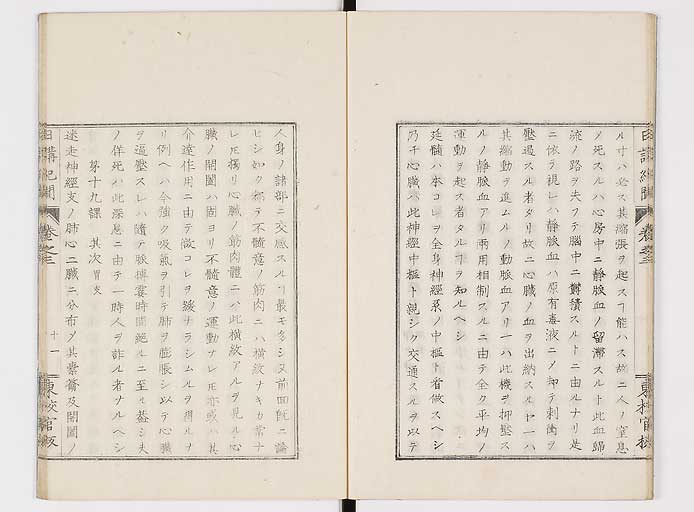 ル寸ハ必ス其縮張ヲ起スヿ能ハス故ニ人ノ窒息
メ死スルハ心房中ニ静脉血ノ留滞スルト此血歸
流ノ路ヲ失フテ腦中ニ欝積スルトニ由ルナリ是
ニ依テ視レハ静脉血ハ原有毒液ニメ却テ刺衝ヲ
壓過スル者タリ故ニ心臓ノ血ヲ出納スルヤ一ハ
其縮動ヲ進ムルノ動脉血アリ一ハ此機ヲ抑壓ス
ルノ静脉血アリ兩用相制スルニ由テ全ク平均ノ
運動ヲ起ス者タルヿヲ知ルヘシ
延髄ハ本コレヲ全身神經系ノ中樞ト看做スヘシ
乃チ心臓ハ此神經中樞ト親シク交通スルヲ以テ
日講紀聞 卷之三
東校官板
人身ノ諸部ニ交感スルヿ最モ多シ又前囬既ニ論
セシ如ク都テ不髄意ノ筋肉ニハ横紋ナキカ常ナ
レ𪜈獨リ心臓ノ筋肉體ニハ此横紋アルヲ見ル心
臓ノ開闔ハ固ヨリ不髄意ノ運動ナレ𪜈亦或ハ其
介達作用ニ由テ微コレヲ緩ナラシムルヲ得ルナ
リ例ヘハ今強ク吸氣ヲ引テ肺ヲ膨脹シ以テ心臓
ヲ逼壓スレハ隨テ脉搏霎時間絶ルニ至ル蓋シ夫
ノ佯死ハ此深息ニ由テ一時人ヲ詐ル者ナルヘシ
第十九課 其次胃支
迷走神經支ノ肺心二臓ニ分布メ其橐籥及開闔ノ
日講紀聞 卷之三 十一 東校官板